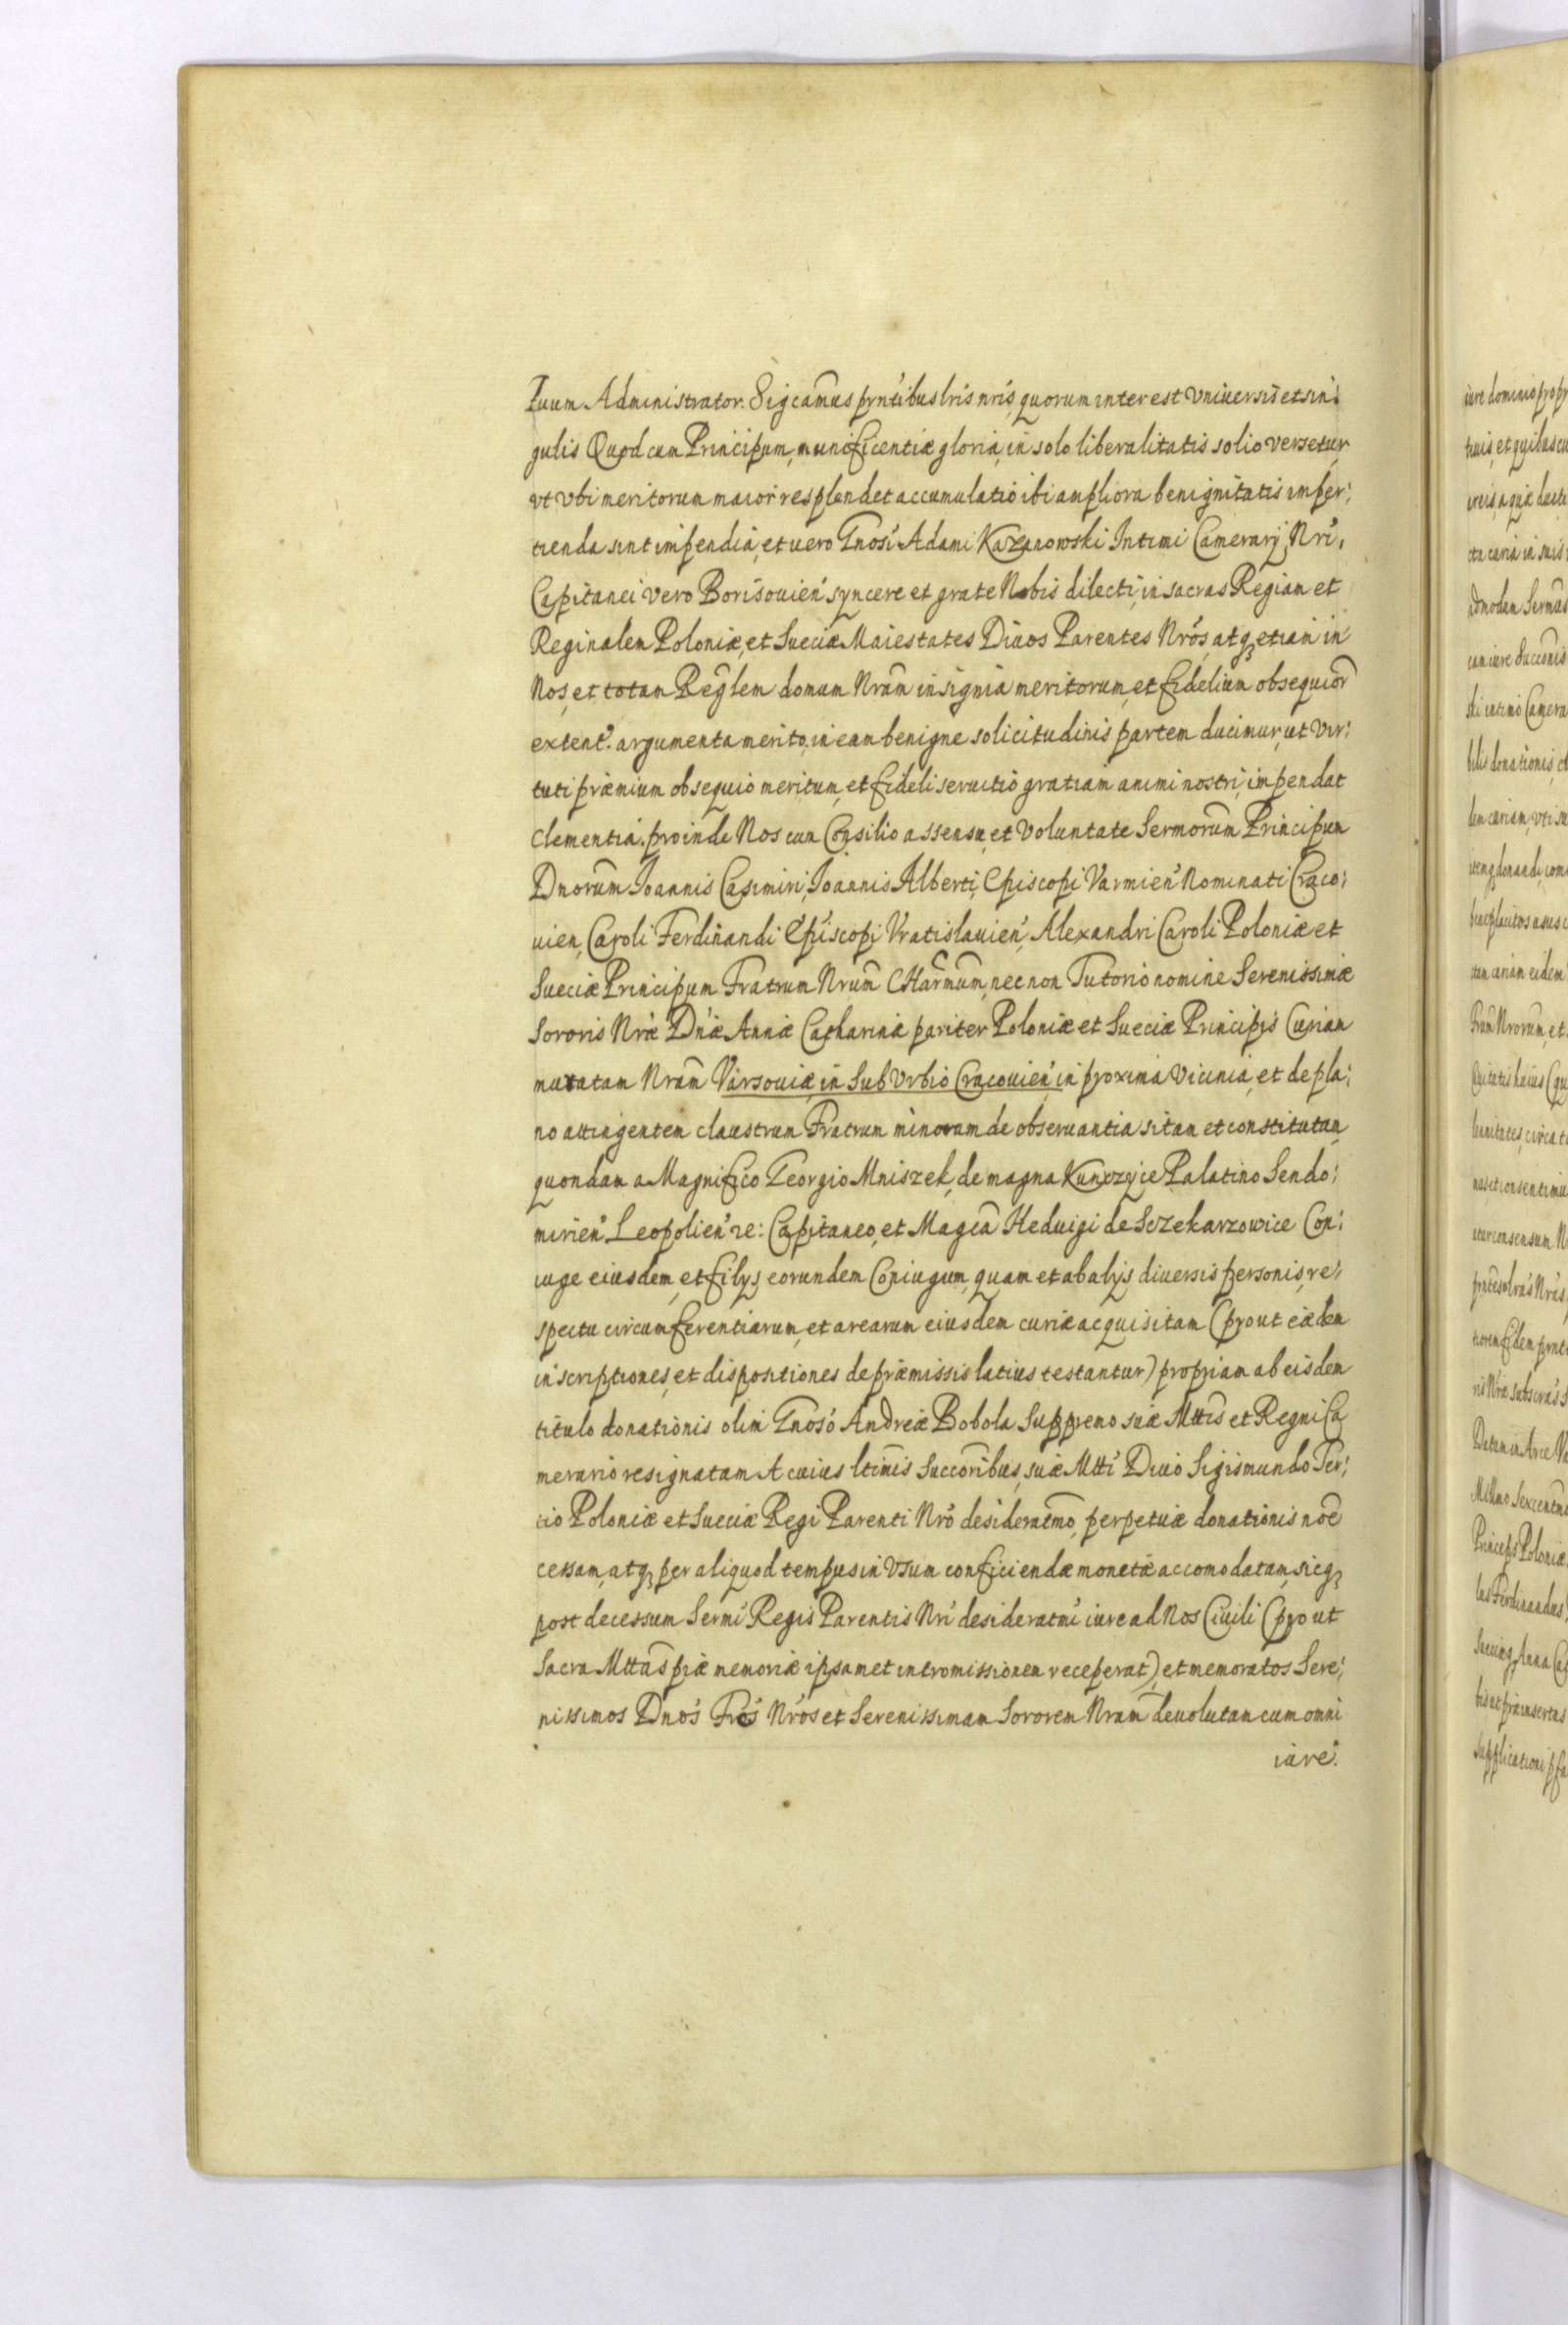 tuum Administrator. Sigcamus pñtibus lris nris, quorum interest vniuersis et sin:
gulis Quod cum Principum, munificentiæ gloria, in solo liberalitatis solio versetur
vt vbi meritorum maior resplendet accumulatio ibi ampliora benignitatis imper:
tienda sint impendia, et vero Gnosi Adami Kazanowski Intimi Camerarij Nri,
Capitanei vero Borisouien syncere et grate Nobis dilecti, in sacras Regiam et
Reginalem Poloniæ, et Sueciæ Maiestates Diuos Parentes Nros, atq; etiam in
Nos, et totam Reglem domum Nram insignia meritorum, et fidelium obsequior
extent. argumenta merito, in eam benigne solicitudinis partem ducimur, ut vir:
tuti præmium obsequio meritum, et fideli seruitio gratiam animi nostri, impendat
clementia. proinde Nos cum Consilio assensu, et voluntate Sermorum Principum
Dnorum Joannis Casimiri, Joannis Alberti, Episcopi Varmien Nominati Craco:
uien, Caroli Ferdinandi Episcopi Vratislauien, Alexandri Caroli Poloniæ et
Sueciæ Principum Fratrum Nrum CHarmum, nec non Tutorio nomine Serenissimæ
Sororis Nræ Dnæ Annæ Catharinæ pariter Poloniæ et Sueciæ Principis Curiam
muratam Nram Varsouiæ, in SubVrbio Cracouien in proxima vicinia, et de pla:
no attingentem claustrum Fratrum minorum de obseruantia sitam et constitutam
quondam a Magnifico Georgio Mniszek, de magna Kunczyce Palatino Sendo:
mirien Leopolien ze: Capitaneo, et Magca Heduigi de Sczekarzowice Con:
iuge eiusdem, et filys eorundem Coniugum, quam et ab alys diuersis personis, re:
spectu circumferentiarum, et arearum eiusdem curiæ acquisitam (prout eædem
inscriptiones, et dispositiones de præmissis latius testantur) propriam ab eisdem
titulo donationis olim Gnoso Andreæ Bobola Suppremo suæ Mttis et Regni Ca
merario resignatam A cuius ltimis Succoribus, suæ Mtti Diuo Sigismundo Ter:
tio Poloniæ et Sueciæ Regi Parenti Nro desideratmo, perpetuæ donationis noe
cessam, atq; per aliquod tempus in vsum conficiendæ monetæ accomodatam, sicq;
post decessum Sermi Regis Parentis Nri desideratmi iure ad Nos Ciuili (prout
Sacra Mttas piæ memoriæ ipsamet intromissionem receperat), et memoratos Sere:
nissimos Dnos Fres Nros et Serenissimam Sororem Nram deuolutam cum omni
iure.